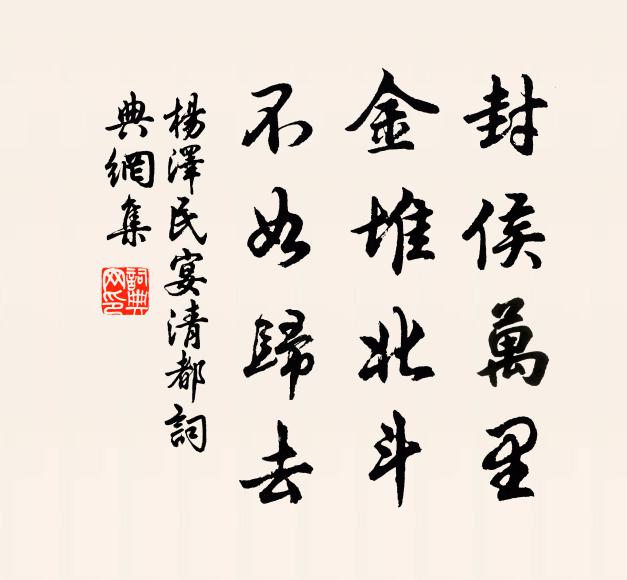 封侯萬里
金堆北斗
不如歸去
楊澤民宴清都詞
典網集
詞典網印